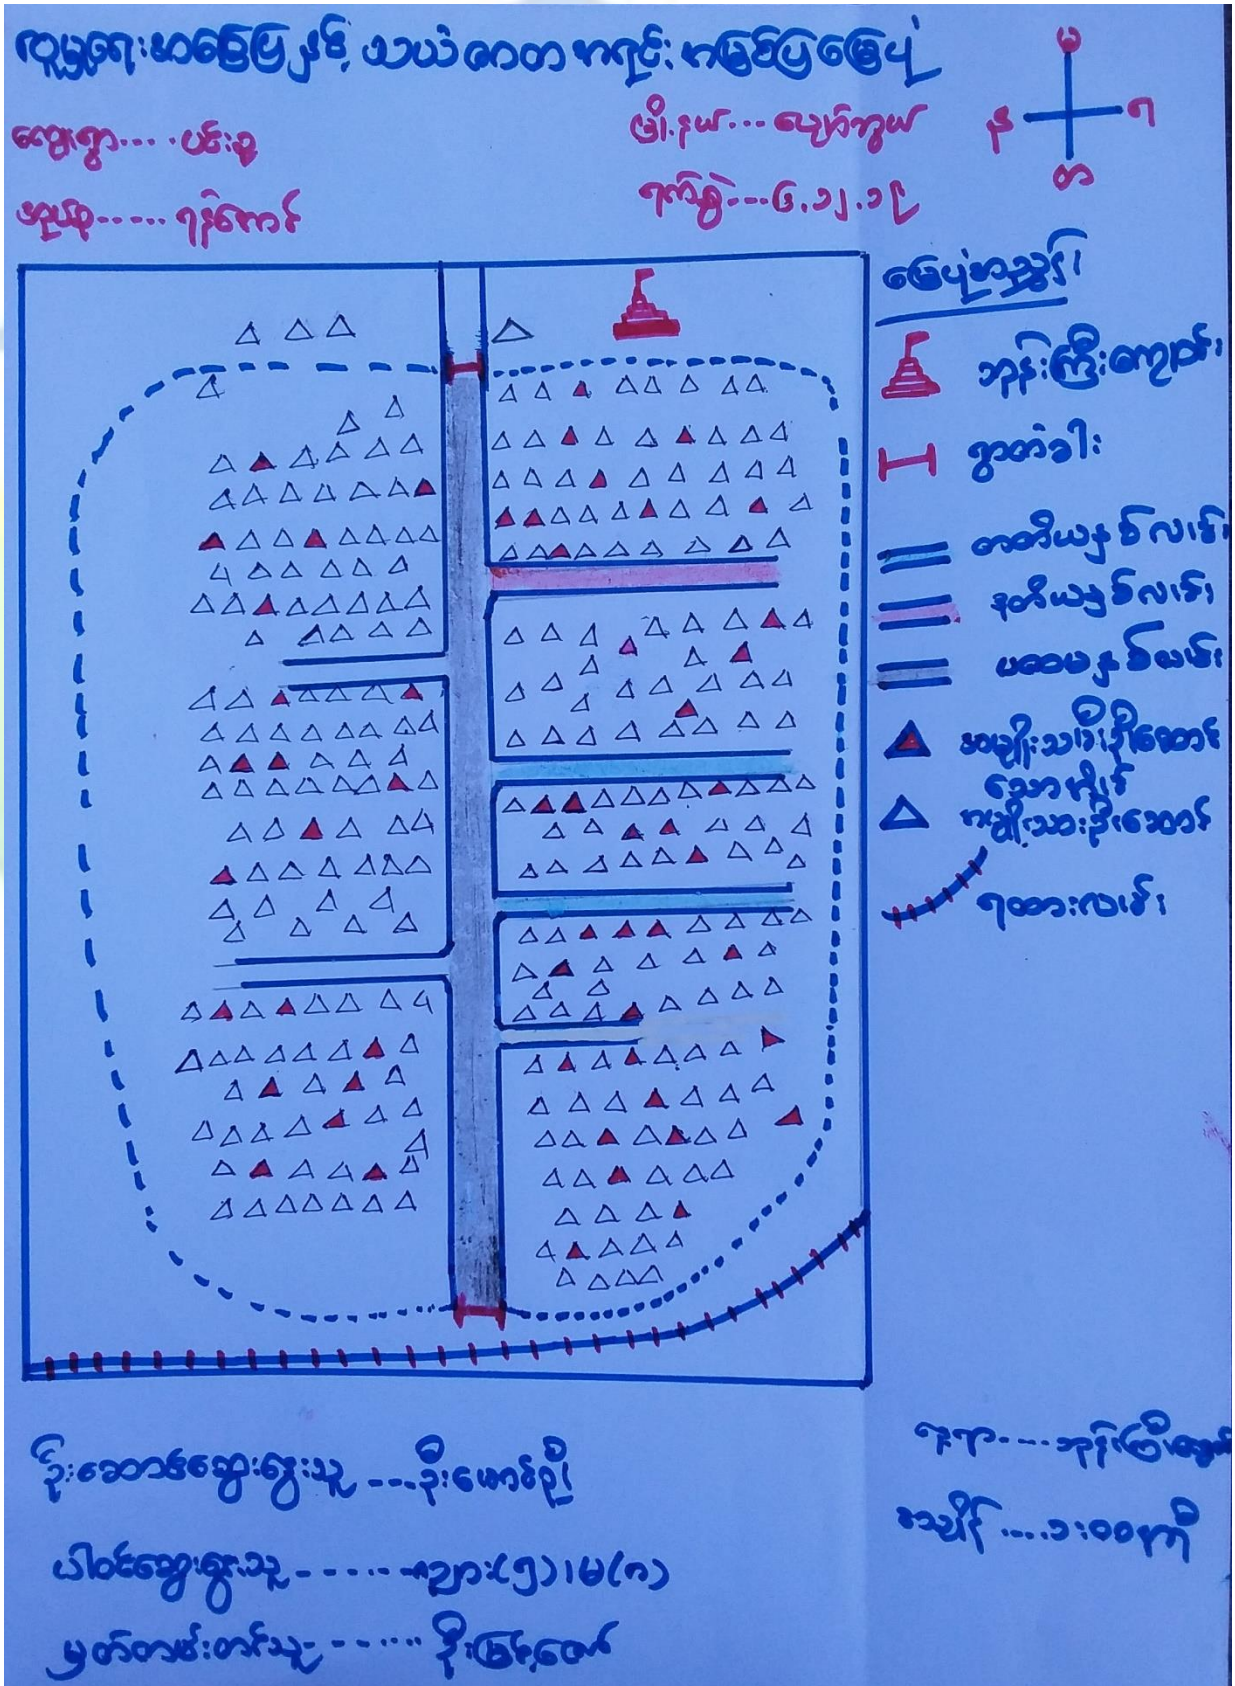 လူမှုရေးအခြေပြနှင့် သယံဇာတ အရင်းအမြစ်ပြမြေပုံ
ကျေးရွာ.... ပင်းစု
မြို့နယ်... ပျော်ဘွယ်
အုပ်စု...... ရန်အောင်
ရက်စွဲ....၆.၁၂.၁၉
မ
န
ရ
တ
မြေပုံအညွှန်း
ဘုန်းကြီးကျောင်း
ရွာတံခါး
တတိယနှစ်လမ်း
ဒုတိယနှစ်လမ်း
ပထမနှစ်လမ်း
အမျိုးသမီးဦးဆောင်
သောအိမ်
အမျိုးသားဦးဆောင်
ရထားလမ်း
ဦးဆောင်ဆွေးနွေးသူ ....ဦးအောင်ညို
ပါဝင်ဆွေးနွေးသူ ........ကျား(၅)၊မ(၈)
မှတ်တမ်းတင်သူ ........ ဦးမြင့်ဇော်
နေရာ.... ဘုန်းကြီးကျောင်း
အချိန် ....၁:၀၀နာရီ